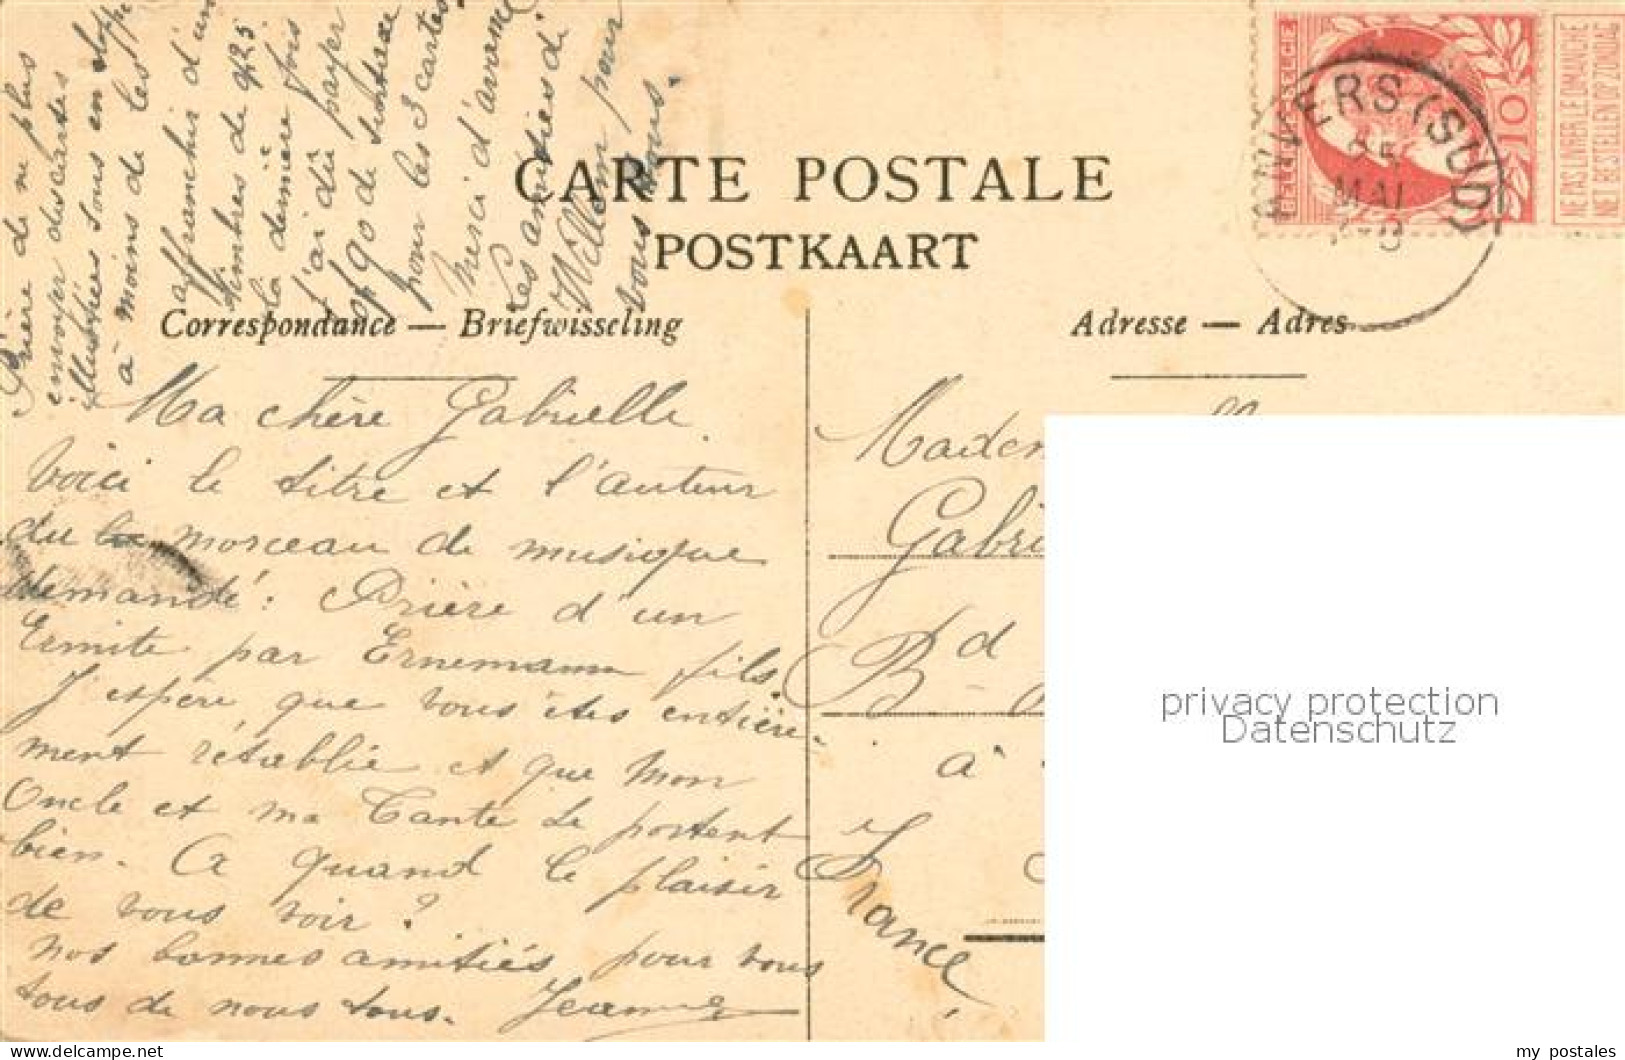 Prière de ne plus
envoyer des cartes
illustrées sous enveloppe
à moins de les
affranchir d'un
timbres de 0,25
la dernière fois
j'ai dû payer
0f 90 de surtaxe
pour les 3 cartes.
Merci d'avance
Les amitiés de
Willem pour
vous tous.
CARTE POSTALE
POSTKAART
Correspondance — Briefwisseling
Adresse — Adres
BELGIQUE BELGIE
10
NE PAS LIVRER LE DIMANCHE
NIET BESTELLEN OP ZONDAG
ANVERS (SUD)
25
MAI
Ma chère Gabrielle
Voici le titre et l'auteur
du morceau de musique
demandé: Prière d'un
Ermite par Ernemann fils.
J'espère que vous êtes entière-
ment rétablie et que mon
Oncle et ma Tante se portent
bien. A quand le plaisir
de vous voir ?
Nos bonnes amitiés pour vous
tous de nous tous. Jeanne
Madem
Gabri
Bd
à
France
privacy protection
Datenschutz
my postales